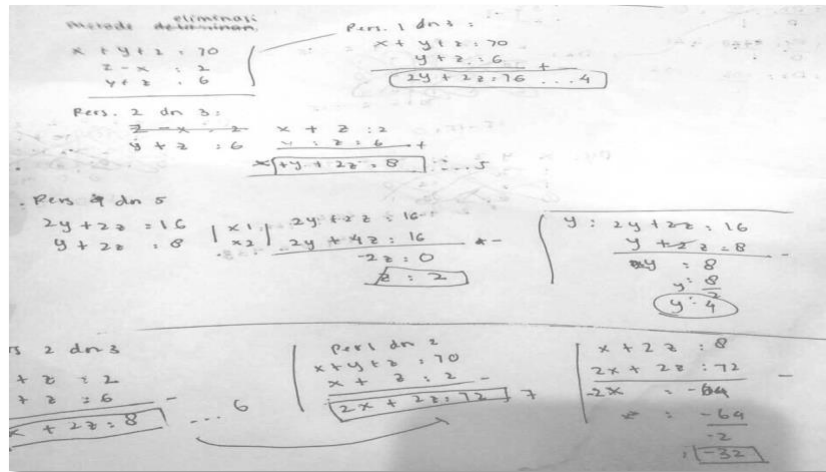 eliminasi
metode determinan
x + y + z = 70
z - x = 2
y + z = 6
Pers. 1 dn 3 :
x + y + z = 70
y + z = 6 +
2y + 2z = 76 ... 4
Pers. 2 dn 3 :
z - x = 2
y + z = 6
x + z = 2
y + z = 6 +
x + y + 2z = 8 ... 5
Pers 4 dn 5
2y + 2z = 16
y + 2z = 8
x1
x2
2y + 2z = 16
2y + 4z = 16 -
-2z = 0
z = 2
y : 2y + 2z = 16
y + 2z = 8 -
y = 8
y = 8/2
y = 4
s 2 dn 3
+ z = 2
+ z = 6 -
x + 2z = 8 ... 6
Pers 1 dn 2
x + y + z = 70
x + z = 2 -
2x + 2z = 72 , 7
x + 2z = 8
2x + 2z = 72 -
-2x = -64
x = -64/-2
= -32